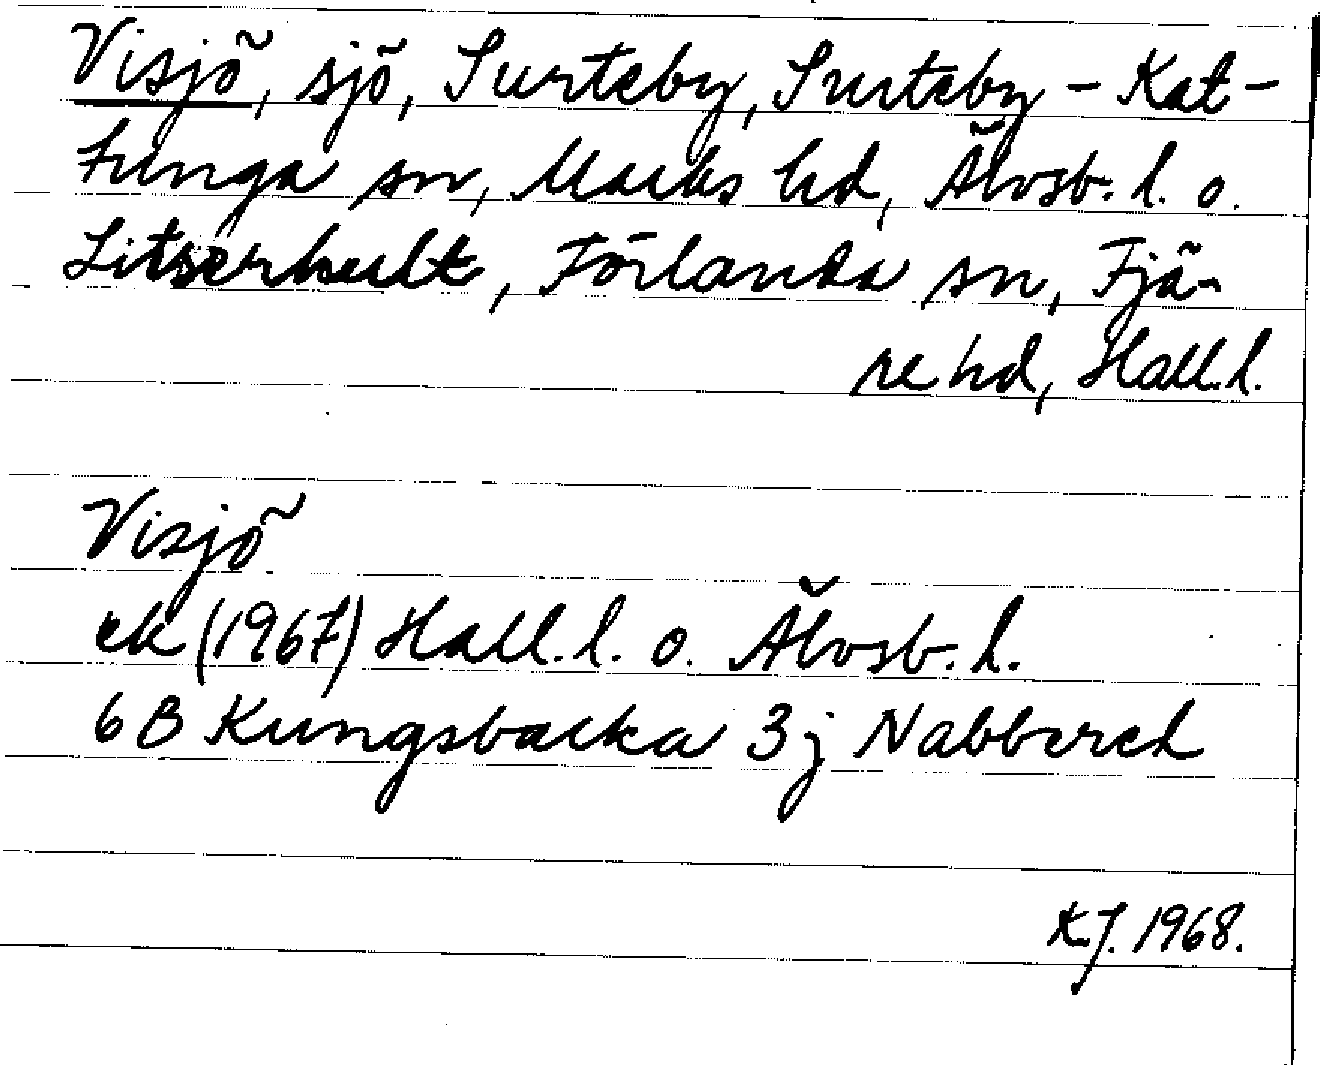 Visjö, sjö, Surteby, Surteby-Kat-
tunga sn, Marks hd, Älvsb. l. o.
Litserhult, Förlanda sn, Fjä-
re hd, Hall. l.
Visjö
ek (1967) Hall. l. o. Älvsb. l.
6B Kungsbacka 3j Nabbered
K.J. 1968.